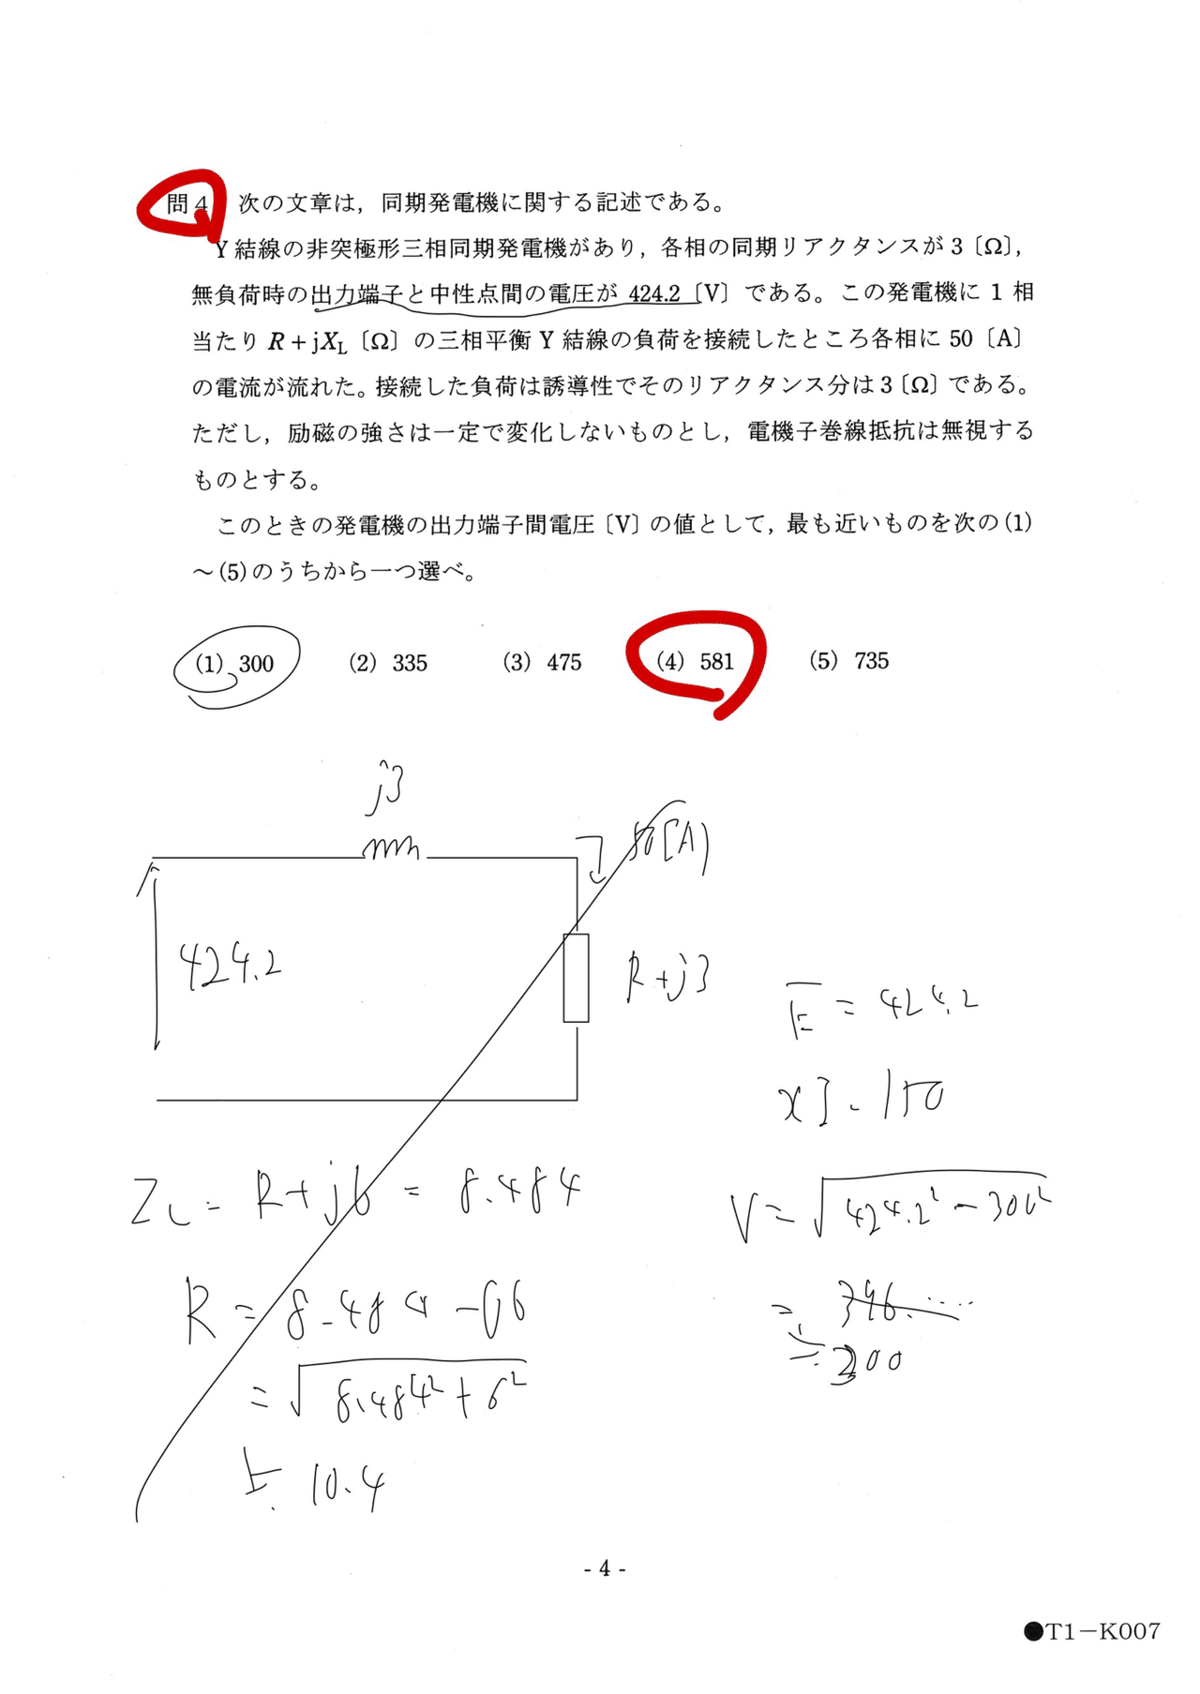 問4 次の文章は，同期発電機に関する記述である。
Y 結線の非突極形三相同期発電機があり，各相の同期リアクタンスが 3〔Ω〕，
無負荷時の出力端子と中性点間の電圧が 424.2〔V〕である。この発電機に 1 相
当たり R＋jXL〔Ω〕の三相平衡 Y 結線の負荷を接続したところ各相に 50〔A〕
の電流が流れた。接続した負荷は誘導性でそのリアクタンス分は 3〔Ω〕である。
ただし，励磁の強さは一定で変化しないものとし，電機子巻線抵抗は無視する
ものとする。
このときの発電機の出力端子間電圧〔V〕の値として，最も近いものを次の(1)
～(5)のうちから一つ選べ。
(1) 300 (2) 335 (3) 475 (4) 581 (5) 735
j3
50[A]
424.2
R+j3
E = 424.2
xI = 150
ZL = R+j6 = 8.484
V = √424.2² - 300²
R = 8.484 - j6
= 346.....
= √8.484² + 6²
≒ 300
≒ 10.4
- 4 -
●T1－K007